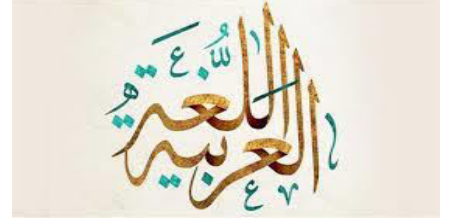 اللغة
العربية